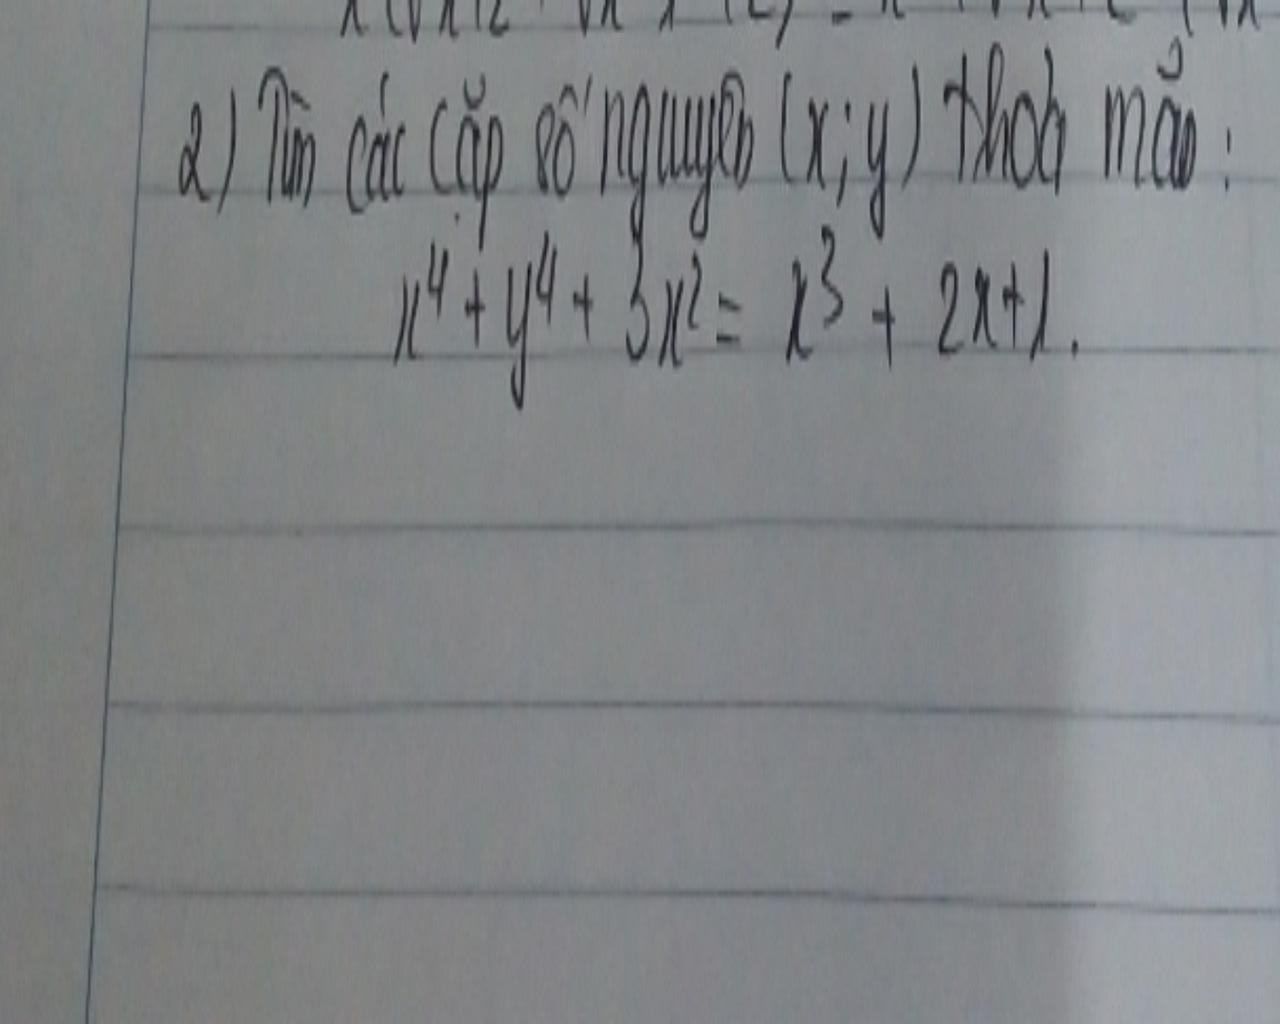 2) Tìm các cặp số nguyên (x; y) thoả mãn:
x⁴ + y⁴ + 3x² = x³ + 2x + 1.